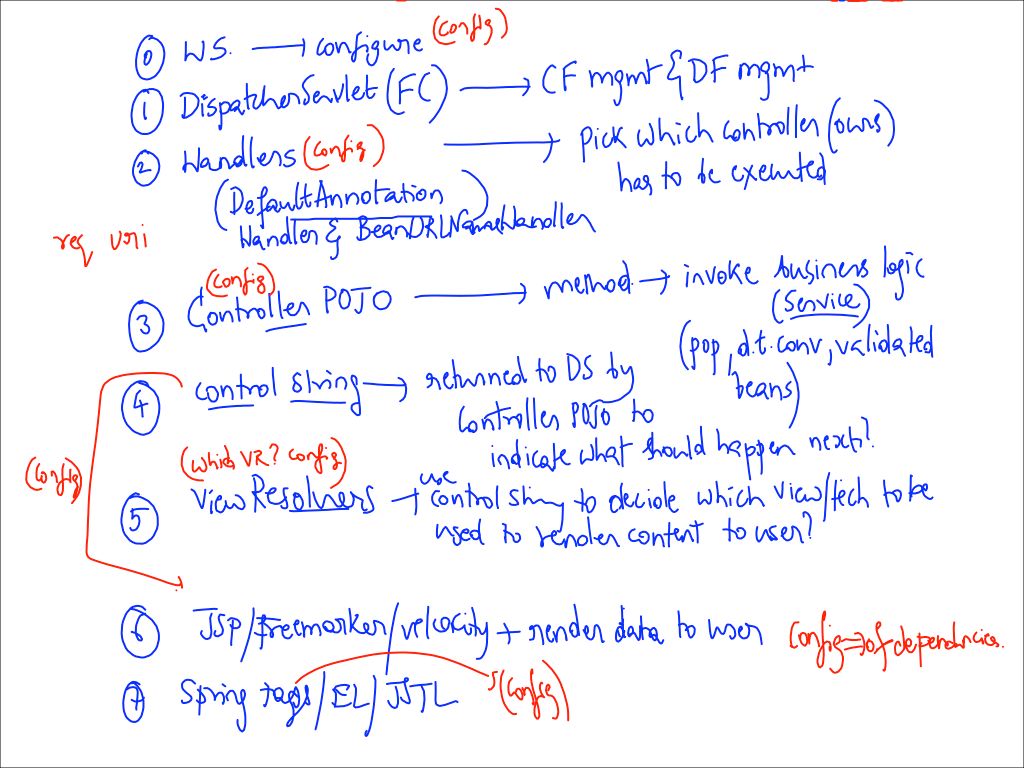 0 WS. → configure (config)
1 DispatcherServlet (FC) → CF mgmt & DF mgmt
2 Handlers (config) → pick which controller (ours)
has to be executed
(DefaultAnnotation
Handler & BeanURLNameHandler)
req uri
(config)
3 Controller POJO → method → invoke business logic
(Service)
(pop, d.t.conv, validated
beans)
4 control string → returned to DS by
Controller POJO to
indicate what should happen next?
(config)
(which VR? config)
5 ViewResolvers → use control string to decide which view/tech to be
used to render content to user?
6 JSP/freemarker/velocity + render data to user
config → of dependencies.
7 Spring tags/EL/JSTL (config)